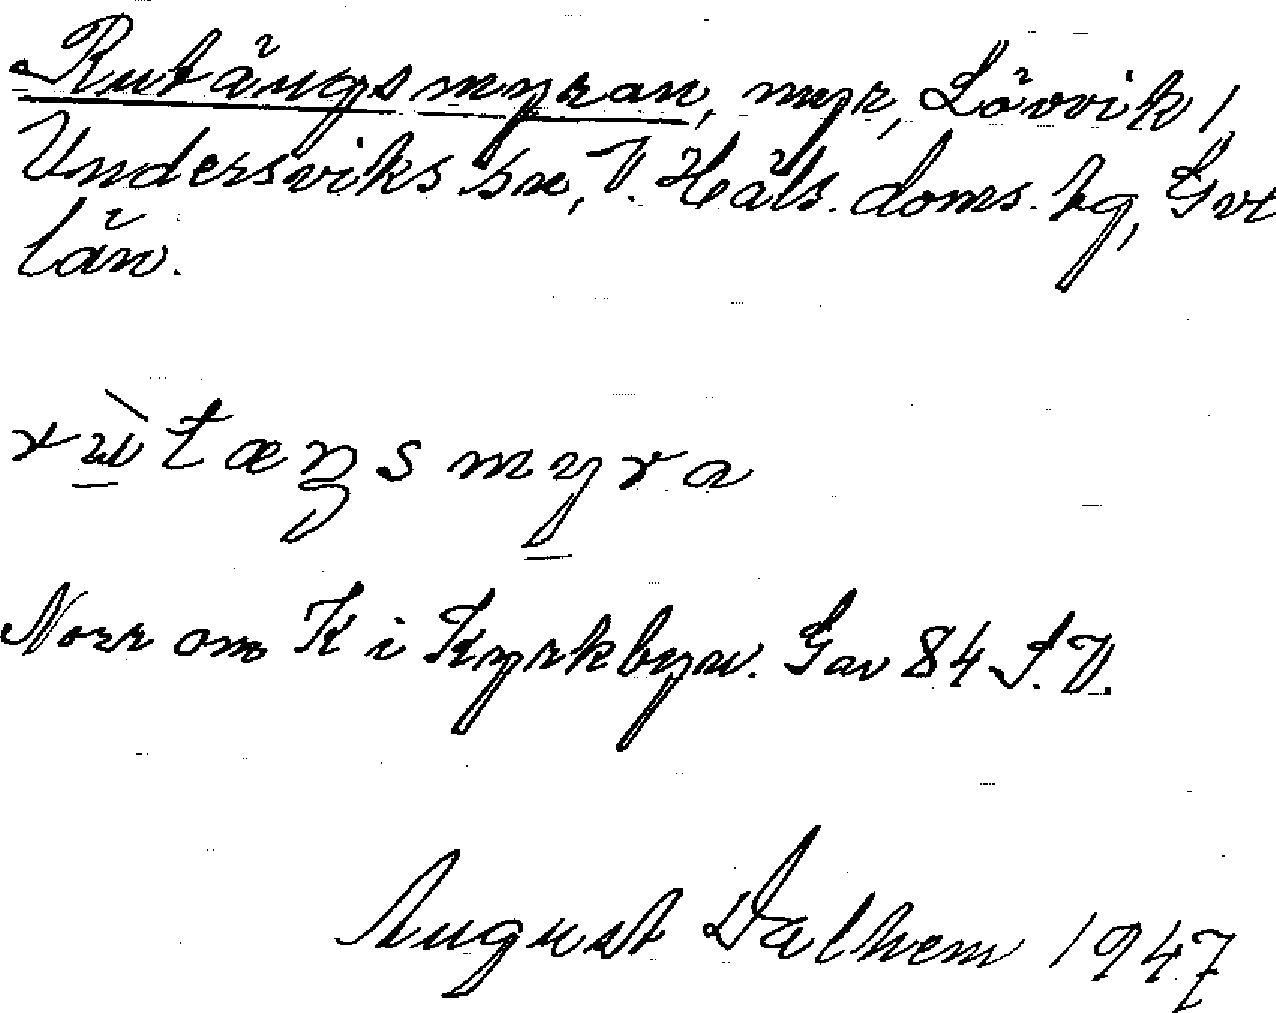 Rutängsmyran, myr, Lövvik 1,
Undersviks sn, V. Häls. doms. hg, Gvl
län.
rùtæŋsmyra
Norr om K i Kyrkbyn. Gav 84 S.V.
August Dalhem 1947